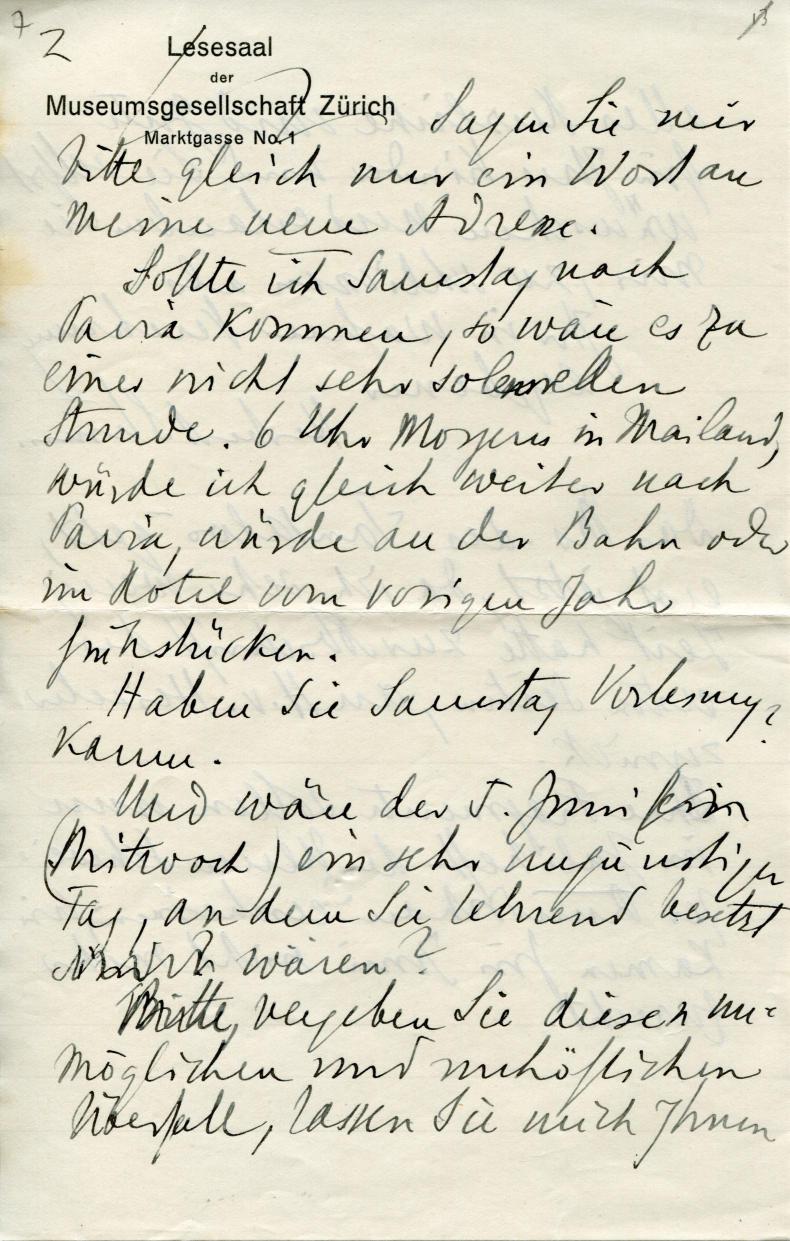 7
2
Lesesaal
der
Museumsgesellschaft Zürich
Marktgasse No. 1
Sagen Sie mir
bitte gleich nur ein Wort an
meine neue Adresse.
Sollte ich Samstag nach
Pavia kommen, so wäre es zu
einer nicht sehr solennellen
Stunde. 6 Uhr Morgens in Mailand,
würde ich gleich weiter nach
Pavia, würde an der Bahn oder
im Hotel vom vorigen Jahr
frühstücken.
Haben Sie Samstag Vorlesung?
Kaum.
Und wäre der 5. Juni
(Mittwoch) ein sehr ungünstiger
Tag, an dem Sie lehrend besetzt
wären?
Bitte, vergeben Sie diesen un-
möglichen und unhöflichen
Überfall, lassen Sie mich Ihnen